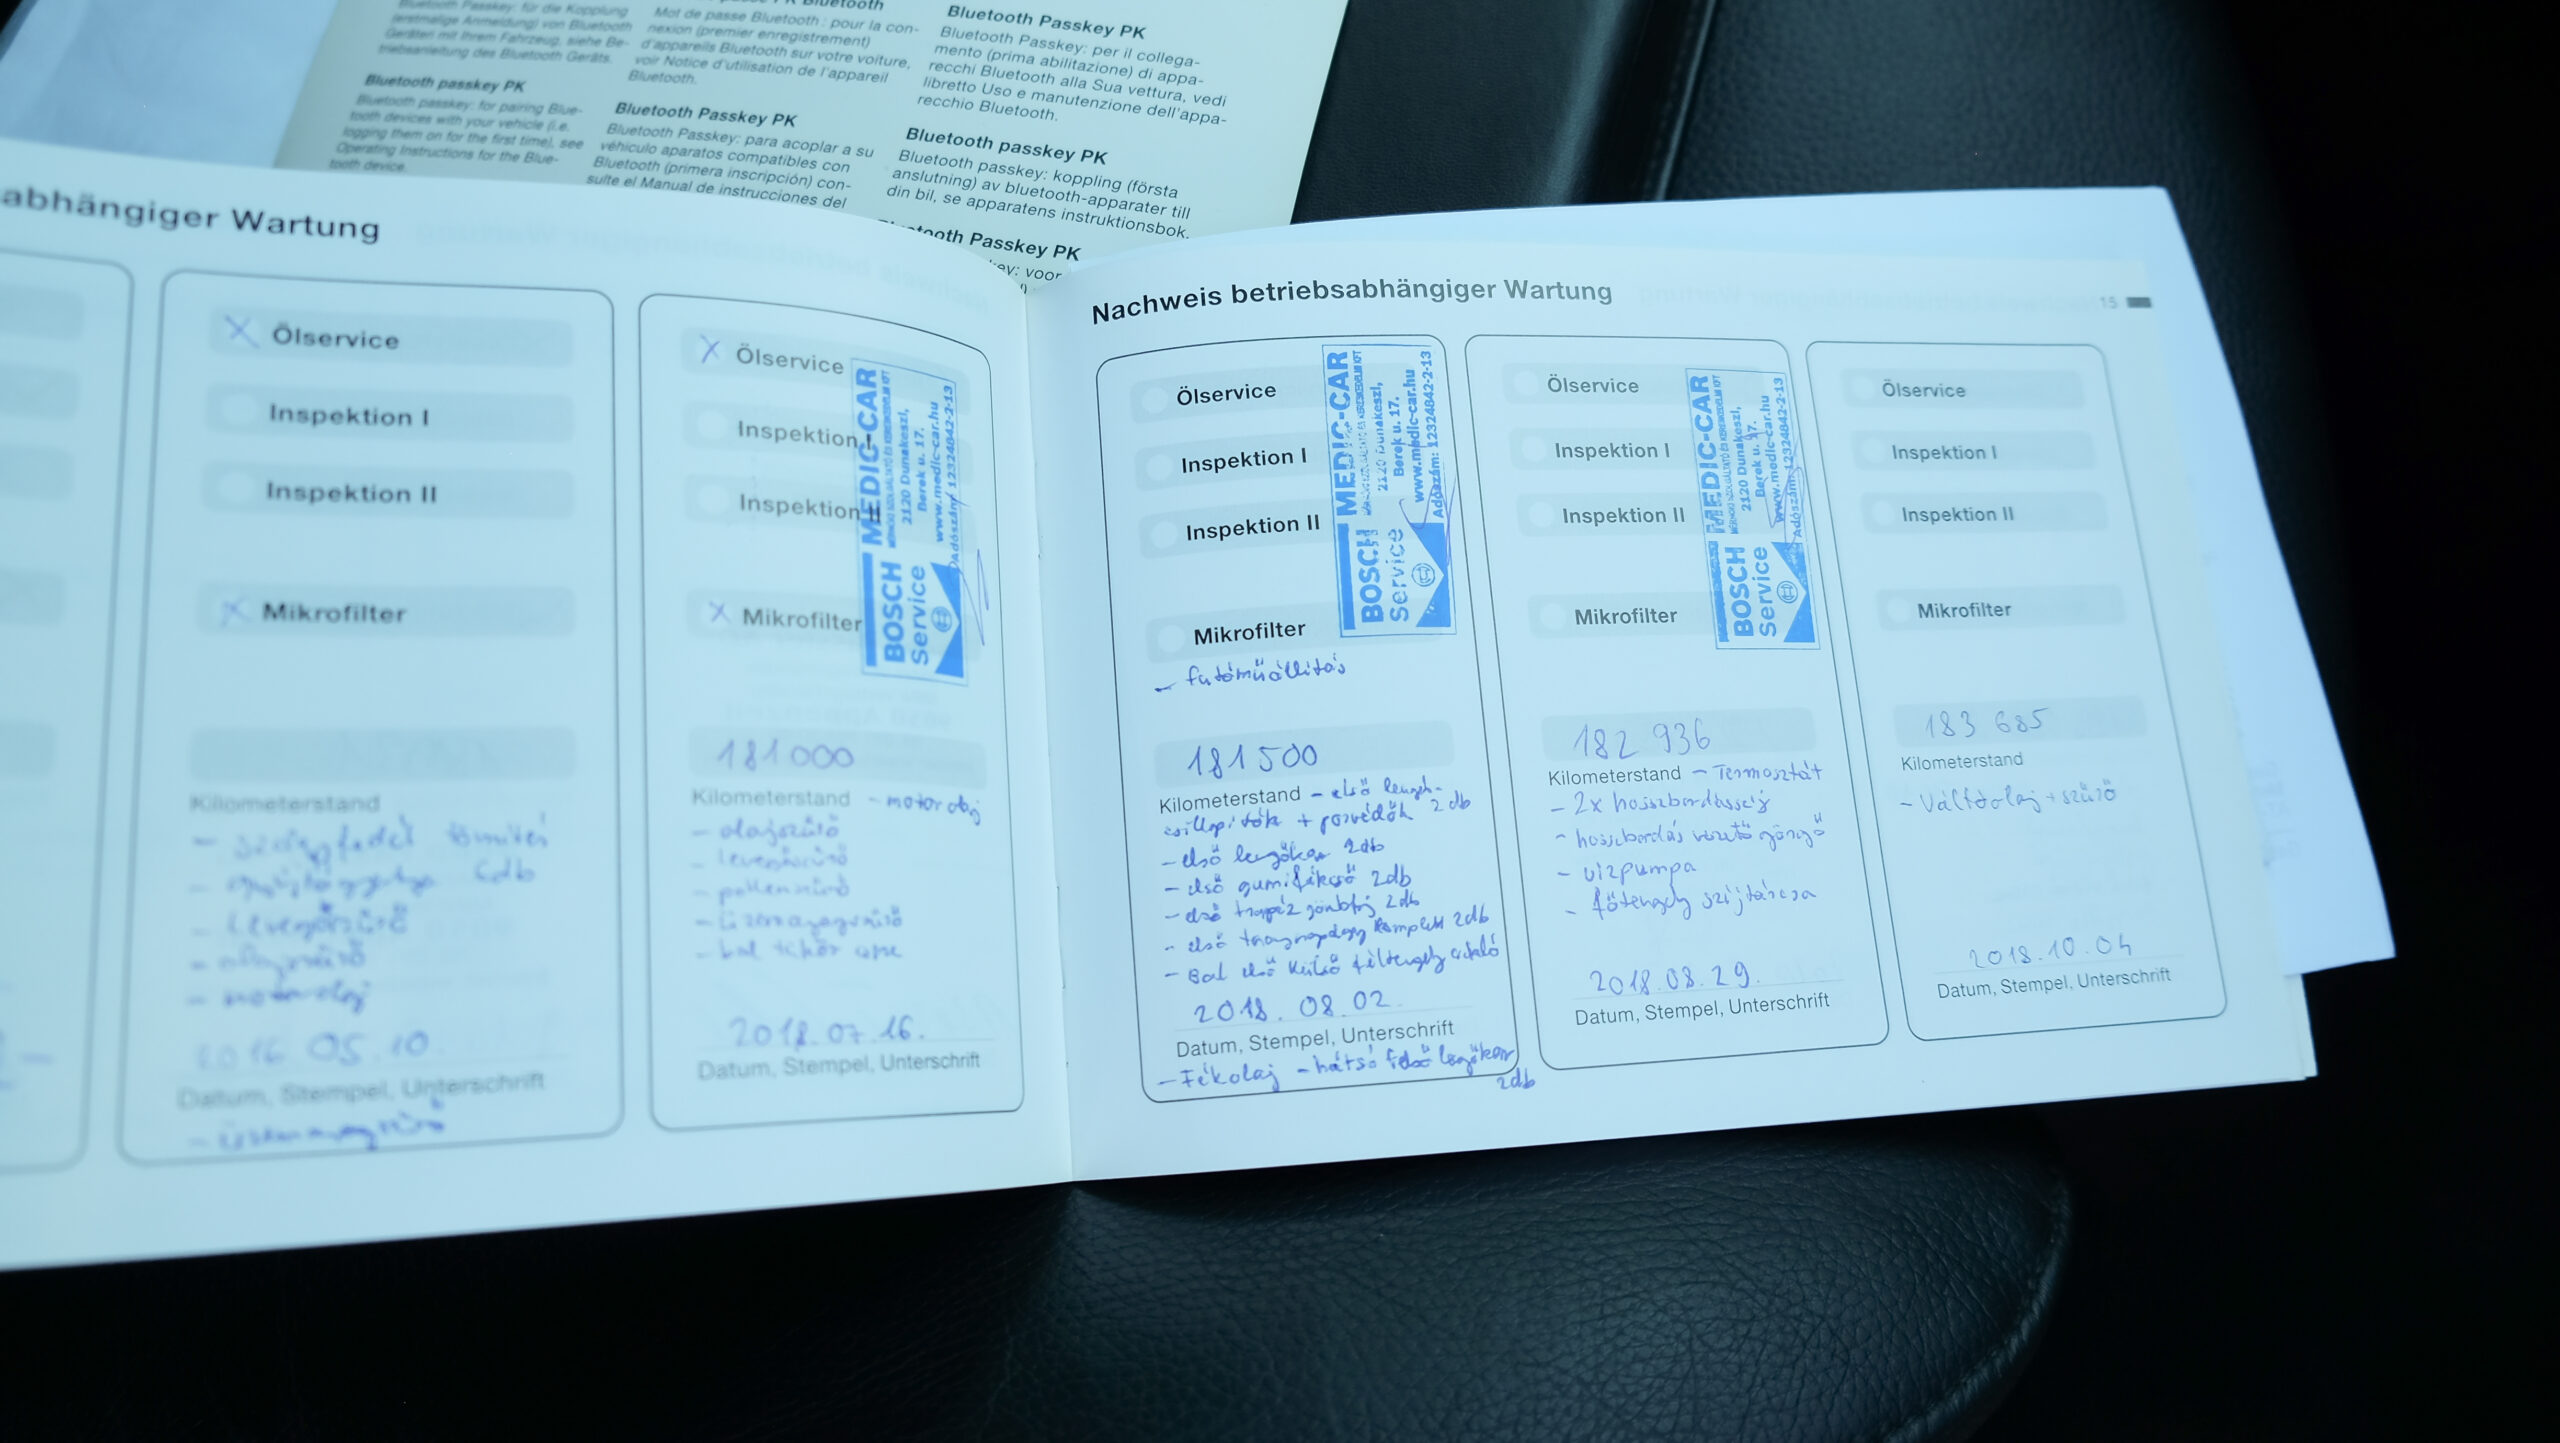 Bluetooth Passkey: für die Kopplung
(erstmalige Anmeldung) von Bluetooth
Geräten mit Ihrem Fahrzeug, siehe Be-
triebsanleitung des Bluetooth Geräts.
Bluetooth passkey PK
Bluetooth passkey: for pairing Blue-
tooth devices with your vehicle (i.e.
logging them on for the first time), see
Operating Instructions for the Blue-
tooth device.
Bluetooth
Mot de passe Bluetooth : pour la con-
nexion (premier enregistrement)
d'appareils Bluetooth sur votre voiture,
voir Notice d'utilisation de l'appareil
Bluetooth.
Bluetooth Passkey PK
Bluetooth Passkey: para acoplar a su
véhiculo aparatos compatibles con
Bluetooth (primera inscripción) con-
sulte el Manual de instrucciones del
Bluetooth Passkey PK
Bluetooth Passkey: per il collega-
mento (prima abilitazione) di appa-
recchi Bluetooth alla Sua vettura, vedi
libretto Uso e manutenzione dell'appa-
recchio Bluetooth.
Bluetooth passkey PK
Bluetooth passkey: koppling (första
anslutning) av bluetooth-apparater till
din bil, se apparatens instruktionsbok.
tooth Passkey PK
voor
abhängiger Wartung
X Ölservice
Inspektion I
Inspektion II
X Mikrofilter
Kilometerstand
- levegőszűrő
- olajszűrő
- motorolaj
2016 05.10
Datum, Stempel, Unterschrift
- üzemanyagszűrő
X Ölservice
Inspektion I
Inspektion II
X Mikrofilter
BOSCH
Service
MEDIC-CAR
2120 Dunakeszi,
Berek u. 17.
www.medic-car.hu
Adószám: 12324842-2-13
181000
Kilometerstand - motorolaj
- olajszűrő
- levegőszűrő
- pollenszűrő
- üzemanyagszűrő
2018.07.16.
Datum, Stempel, Unterschrift
Nachweis betriebsabhängiger Wartung
15
Ölservice
Inspektion I
Inspektion II
Mikrofilter
BOSCH
Service
MEDIC-CAR
2120 Dunakeszi,
Berek u. 17.
www.medic-car.hu
Adószám: 12324842-2-13
- futóműállítás
181500
Kilometerstand - első lengés-
csillapítók + porvédők 2db
- első lengőkar 2db
- első gumifékcső 2db
- első trapéz gömbfej 2db
- első komplett 2db
- Bal első külső féltengely csukló
2018. 08. 02.
Datum, Stempel, Unterschrift
- Fékolaj - hátsó felső lengőkar
2db
Ölservice
Inspektion I
Inspektion II
Mikrofilter
BOSCH
Service
MEDIC-CAR
2120 Dunakeszi,
Berek u. 17.
www.medic-car.hu
Adószám: 12324842-2-13
182 936
Kilometerstand - Termosztát
- 2x hosszbordásszíj
- hosszbordás vezető görgő
- vízpumpa
- főtengely szíjtárcsa
2018.08.29.
Datum, Stempel, Unterschrift
Ölservice
Inspektion I
Inspektion II
Mikrofilter
183 685
Kilometerstand
- Váltóolaj + szűrő
2018.10.04
Datum, Stempel, Unterschrift